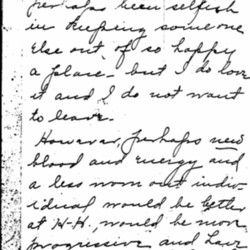 perhaps been selfish
in keeping someone
else out of so happy
a place - but I do love
it and I do not want
to leave.
However, perhaps new
blood and energy and
a less worn out indiv-
idual would be better
at H-H, would be more
progressive and have